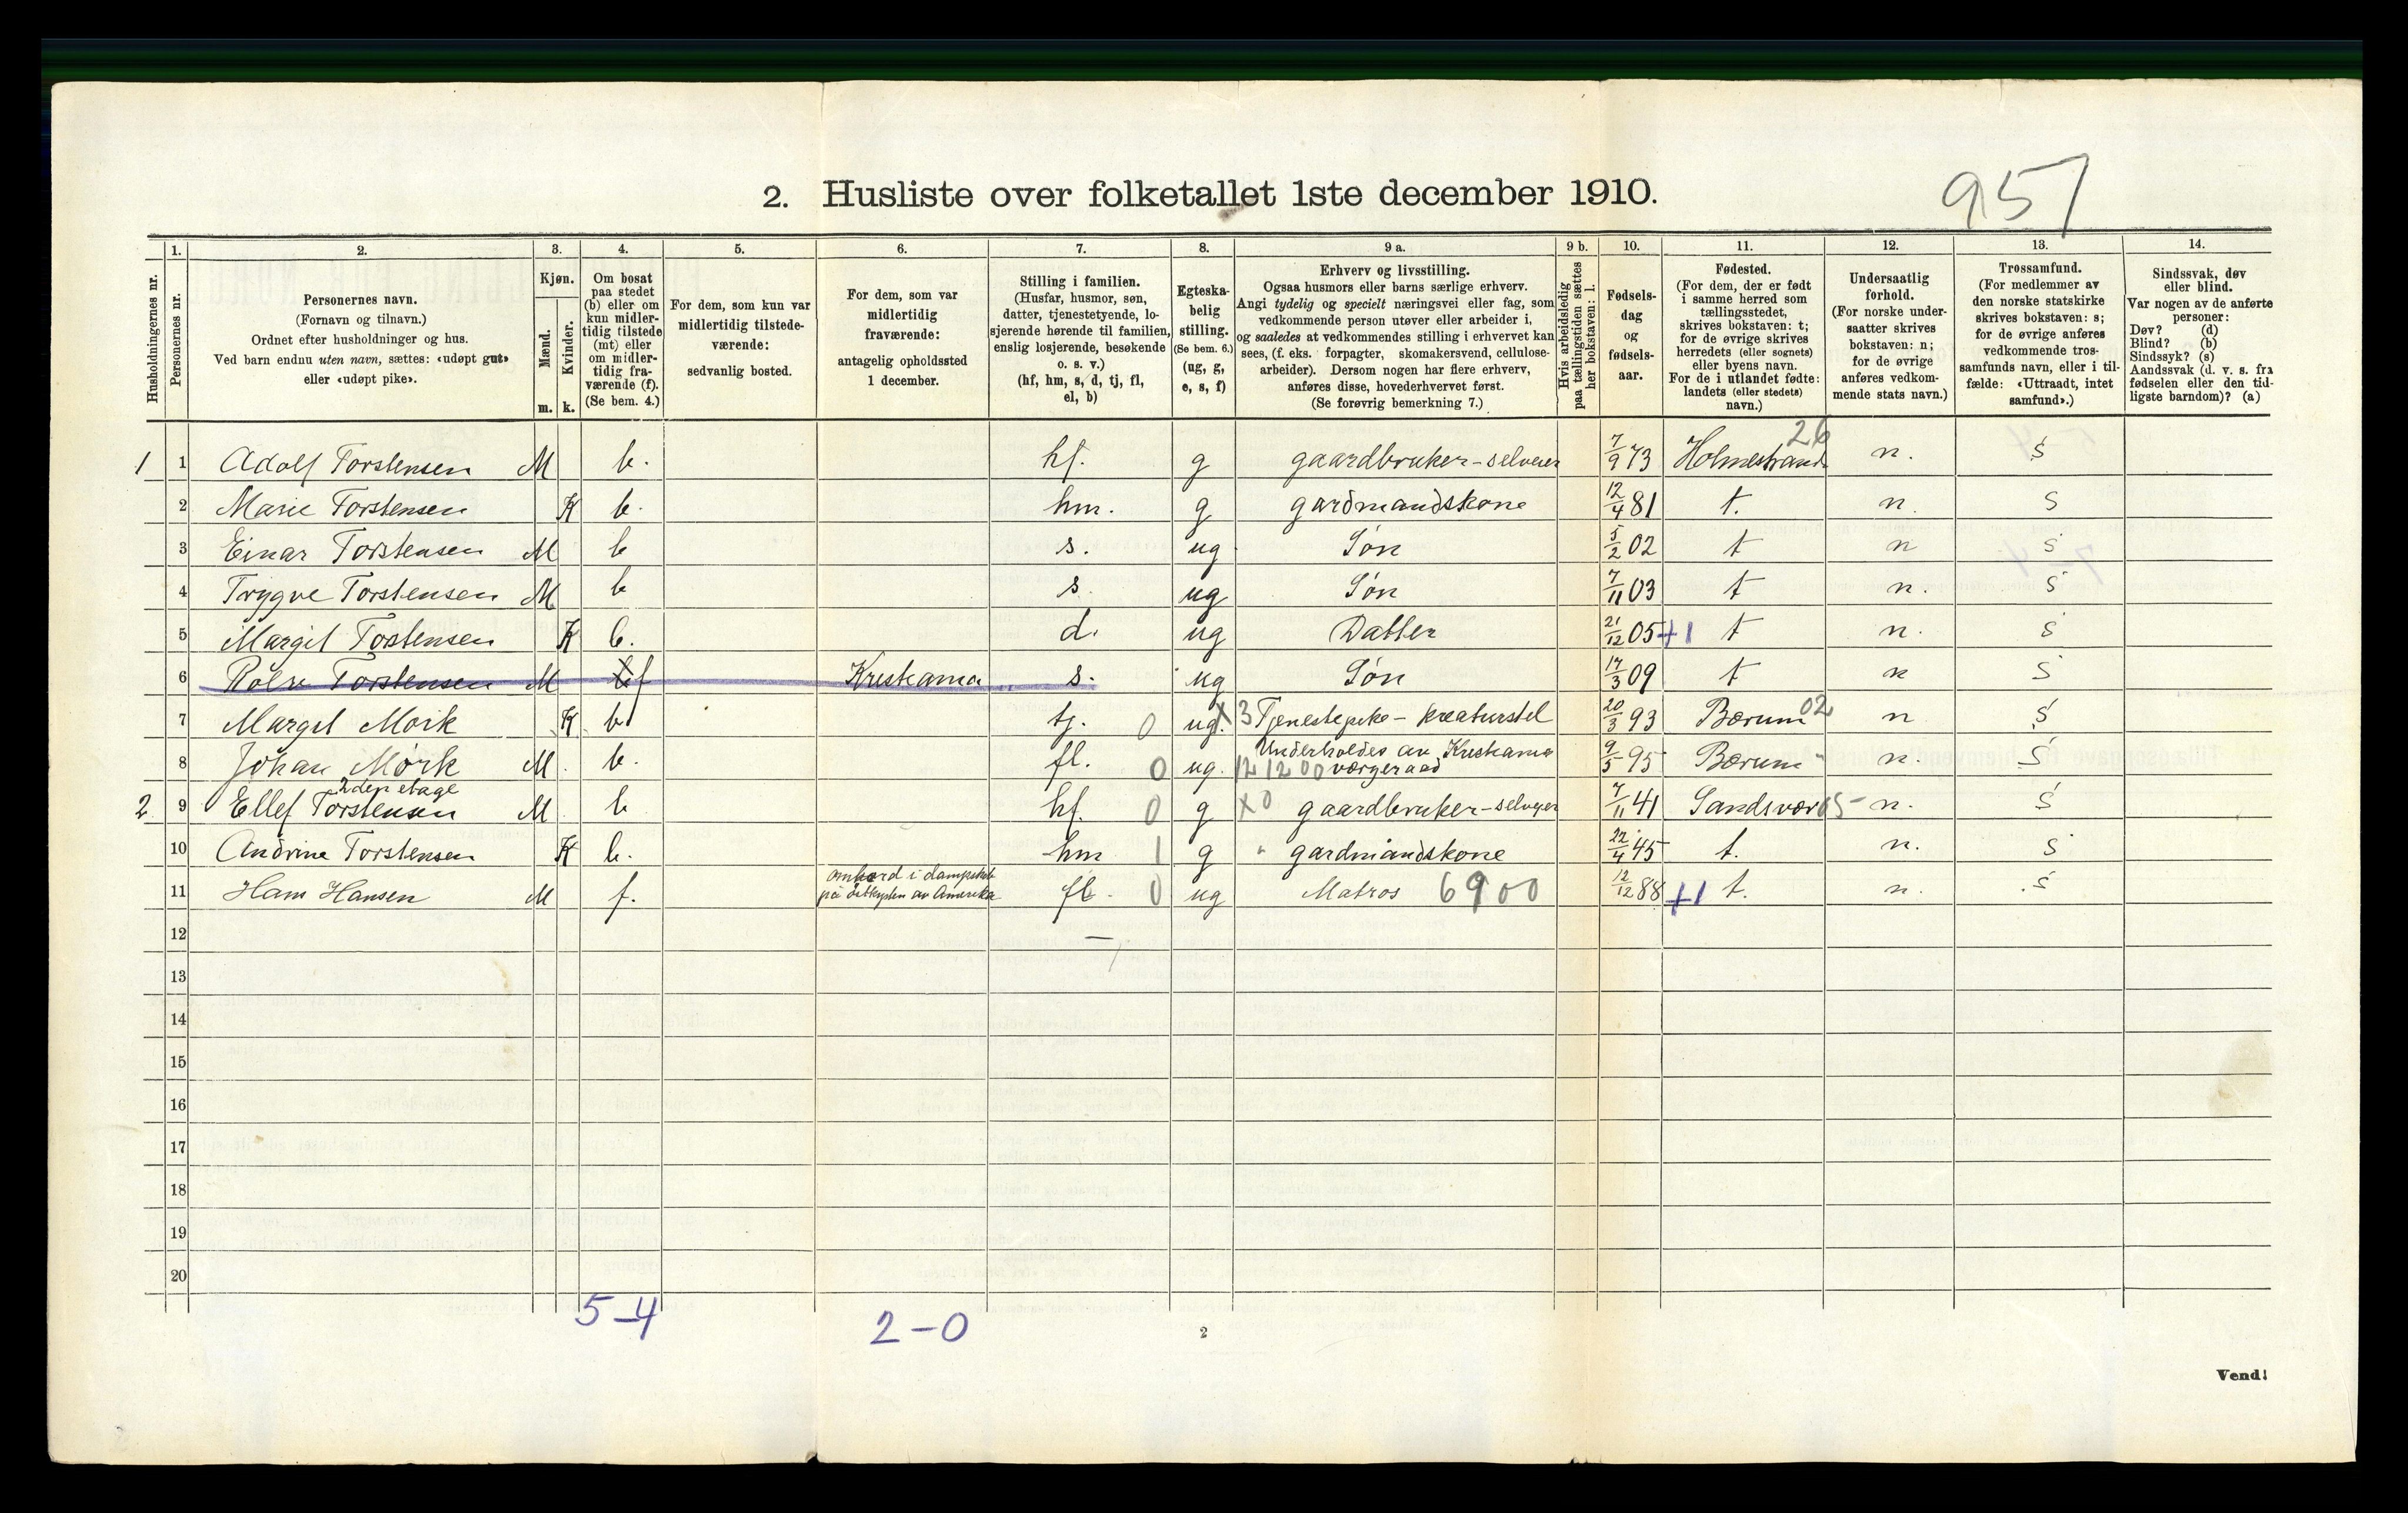 957
2. Husliste over folketallet 1ste december 1910.
Husholdningernes nr.
1.
Personernes nr.
2.
Personernes navn.
(Fornavn og tilnavn.)
Ordnet efter husholdninger og hus.
Ved barn endnu uten navn, sættes: «udøpt gut»
eller «udøpt pike».
3.
Kjøn.
Mænd.
Kvinder.
m. k.
4.
Om bosat
paa stedet
(b) eller om
kun midler-
tidig tilstede
(mt) eller
om midler-
tidig fra-
værende (f).
(Se bem. 4.)
5.
For dem, som kun var
midlertidig tilstede-
værende:
sedvanlig bosted.
6.
For dem, som var
midlertidig
fraværende:
antagelig opholdssted
1 december.
7.
Stilling i familien.
(Husfar, husmor, søn,
datter, tjenestetyende, lo-
sjerende hørende til familien,
enslig losjerende, besøkende
o. s. v.)
(hf, hm, s, d, tj, fl,
el, b)
8.
Egteska-
belig
stilling.
(Se bem. 6.)
(ug, g,
e, s, f)
9 a.
Erhverv og livsstilling.
Ogsaa husmors eller barns særlige erhverv.
Angi tydelig og specielt næringsvei eller fag, som
vedkommende person utøver eller arbeider i,
og saaledes at vedkommendes stilling i erhvervet kan
sees, (f. eks. forpagter, skomakersvend, cellulose-
arbeider). Dersom nogen har flere erhverv,
anføres disse, hovederhvervet først.
(Se forøvrig bemerkning 7.)
9 b.
Hvis arbeidsledig
paa tællingstiden sættes
her bokstaven: l.
10.
Fødsels-
dag
og
fødsels-
aar.
11.
Fødested.
(For dem, der er født
i samme herred som
tællingsstedet,
skrives bokstaven: t;
for de øvrige skrives
herredets (eller sognets)
eller byens navn.
For de i utlandet fødte:
landets (eller stedets)
navn.)
12.
Undersaatlig
forhold.
(For norske under-
saatter skrives
bokstaven: n;
for de øvrige
anføres vedkom-
mende stats navn.)
13.
Trossamfund.
(For medlemmer av
den norske statskirke
skrives bokstaven: s;
for de øvrige anføres
vedkommende tros-
samfunds navn, eller i til-
fælde: «Uttraadt, intet
samfund».)
14.
Sindssvak, døv
eller blind.
Var nogen av de anførte
personer:
Døv? (d)
Blind? (b)
Sindssyk? (s)
Aandssvak (d. v. s. fra
fødselen eller den tid-
ligste barndom)? (a)
26
1 1 Adolf Torstensen M b. hf. g gaardbruker-selveier 7/9 73 Holmestrand n. s
2 Marie Torstensen K b. hm. g gardmandskone 12/4 81 t. n. s
3 Einar Torstensen M b s. ug Søn 5/2 02 t n s
4 Trygve Torstensen M b s. ug Søn 7/11 03 t n. s
5 Margit Torstensen K b. d. ug Datter 21/12 05 +1 t n. s
6 Torstensen M f Kristiania s. ug Søn 3 09 t n s
7 Margit Mörk K b tj. 0 ug. X 3 Tjenestepike - kreaturstel 20/3 93 Bærum 02 n s
Underholdes av Kristiania
8 Johan Mörk M. b. fl. 0 ug. 12 1200 værgeraad 9/5 95 Bærum " n. s
2den etage
2 9 Ellef Torstensen M b hf. 0 g X0 gaardbruker-selveier 7/11 41 Sandsvær 05 n. s
10 Andrine Torstensen K b. hm 1 g " gardmandskone 22/4 45 t. n. s
ombord i dampskib
11 Hans Hansen M f. på östkysten av Amerika fl. 0 ug Matros 6900 12/12 88 +1 t. n. s
12
13
14
15
16
17
18
19
20
5-4
2-0
2
Vend!